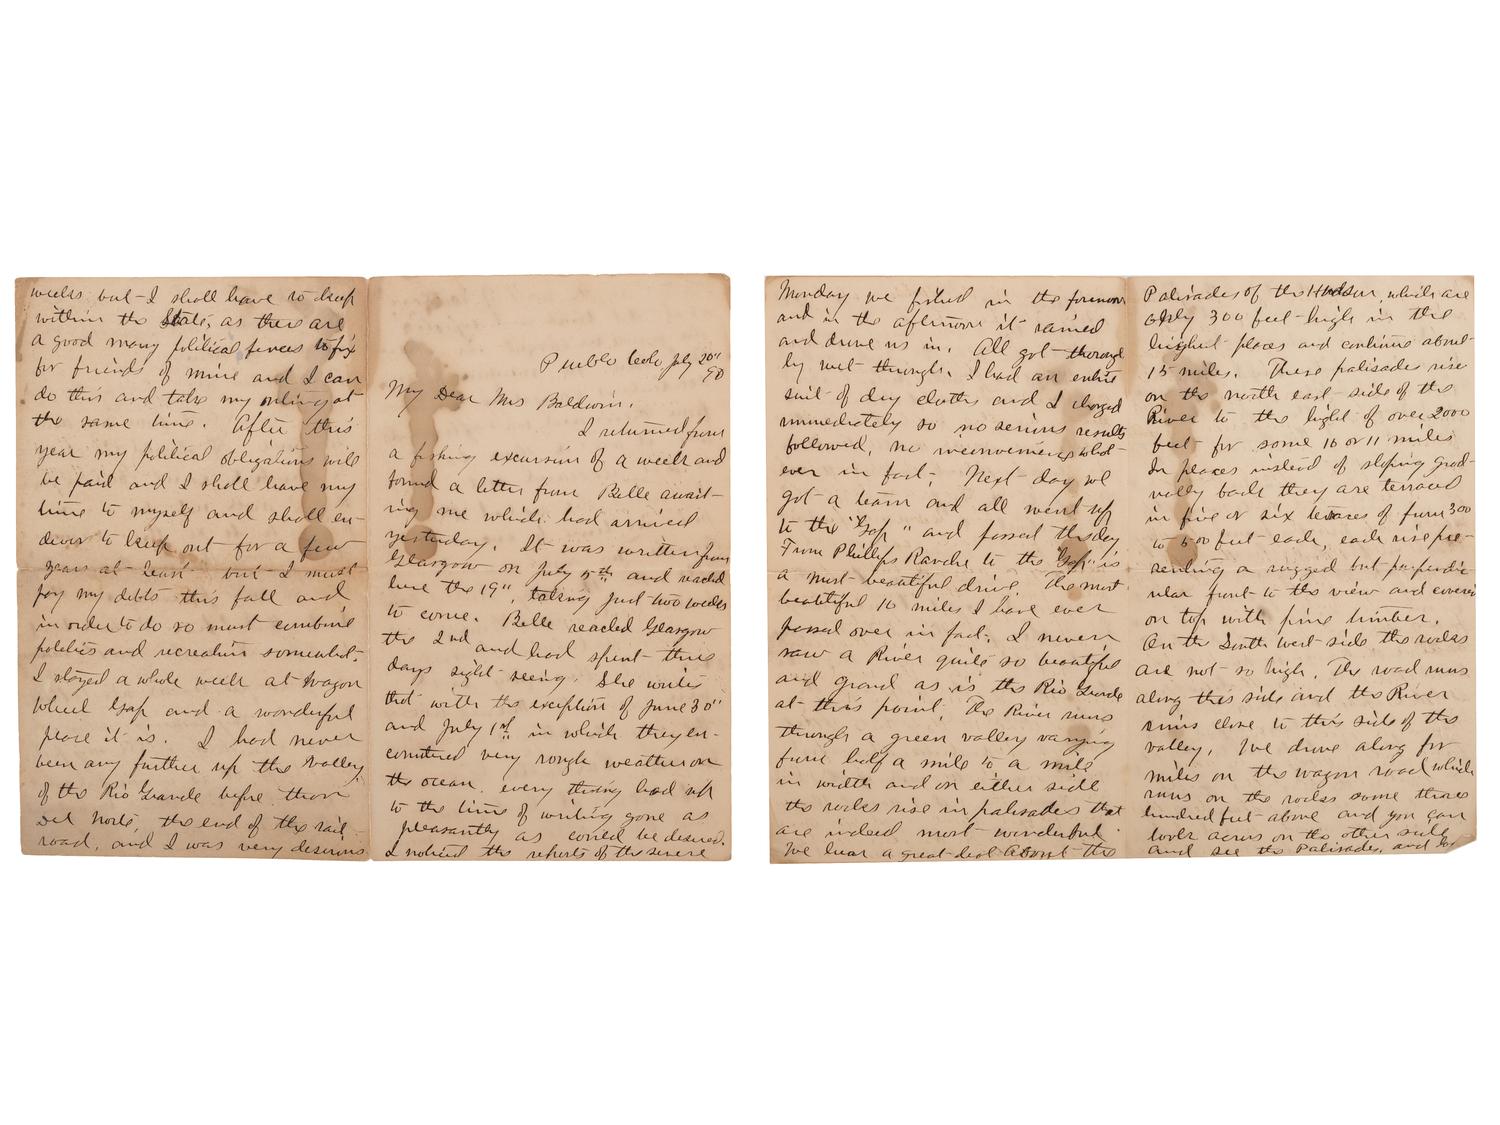 weeks but I shall have to keep
within the State, as there are
a good many political fences to fix
for friends of mine and I can
do this and take my outing at
the same time. After this
year my political obligations will
be paid and I shall have my
time to myself and shall en-
deavor to keep out for a few
years at least but I must
pay my debts this fall and
in order to do so must combine
politics and recreation somewhat.
I stayed a whole week at Wagon
Wheel Gap and a wonderful
place it is. I had never
been any further up the valley
of the Rio Grande before than
Del Norte, the end of the rail-
road, and I was very desirous
Pueblo Colo July 20"
90
My Dear Mrs Baldwin.
I returned from
a fishing excursion of a week and
found a letter from Belle await-
ing me which had arrived
yesterday. It was written from
Glasgow on July 5th and reached
here the 19", taking just two weeks
to come. Belle reached Glasgow
the 2nd and had spent three
days sight-seeing. She writes
that with the exception of June 30"
and July 1st in which they en-
countered very rough weather on
the ocean. every thing had up
to the time of writing gone as
pleasantly as could be desired.
I noticed the reports of the severe
Monday we fished in the forenoon
and in the afternoon it rained
and drove us in. All got thorough
ly wet through. I had an entire
suit of dry clothes and I changed
immediately so no serious results
followed, no inconvenience what-
ever in fact. Next day we
got a team and all went up
to the "Gap" and passed the day
From Phillips Ranche to the "Gap" is
a most beautiful drive. The most
beautiful 10 miles I have ever
passed over in fact. I never
saw a River quite so beautiful
and grand as is the Rio Grande
at this point. The River runs
through a green valley varying
from half a mile to a mile
in width and on either side
the rocks rise in palisades that
are indeed most wonderful.
We hear a great deal about the
Palisades of the Hudson, which are
only 300 feet high in the
highest places and continue about
15 miles. These palisades rise
on the north east side of the
River to the hight of over 2000
feet for some 10 or 11 miles
In places instead of sloping grad-
ually back they are terraced
in five or six terraces of from 300
to 500 feet each, each rise pre-
senting a rugged but perpendic-
ular front to the view and covered
on top with pine timber.
On the South west side the rocks
are not so high. The road runs
along this side and the River
runs close to this side of the
valley. We drove along for
miles on the wagon road which
runs on the rocks some three
hundred feet above and you can
look across on the other side
and see the Palisades, and